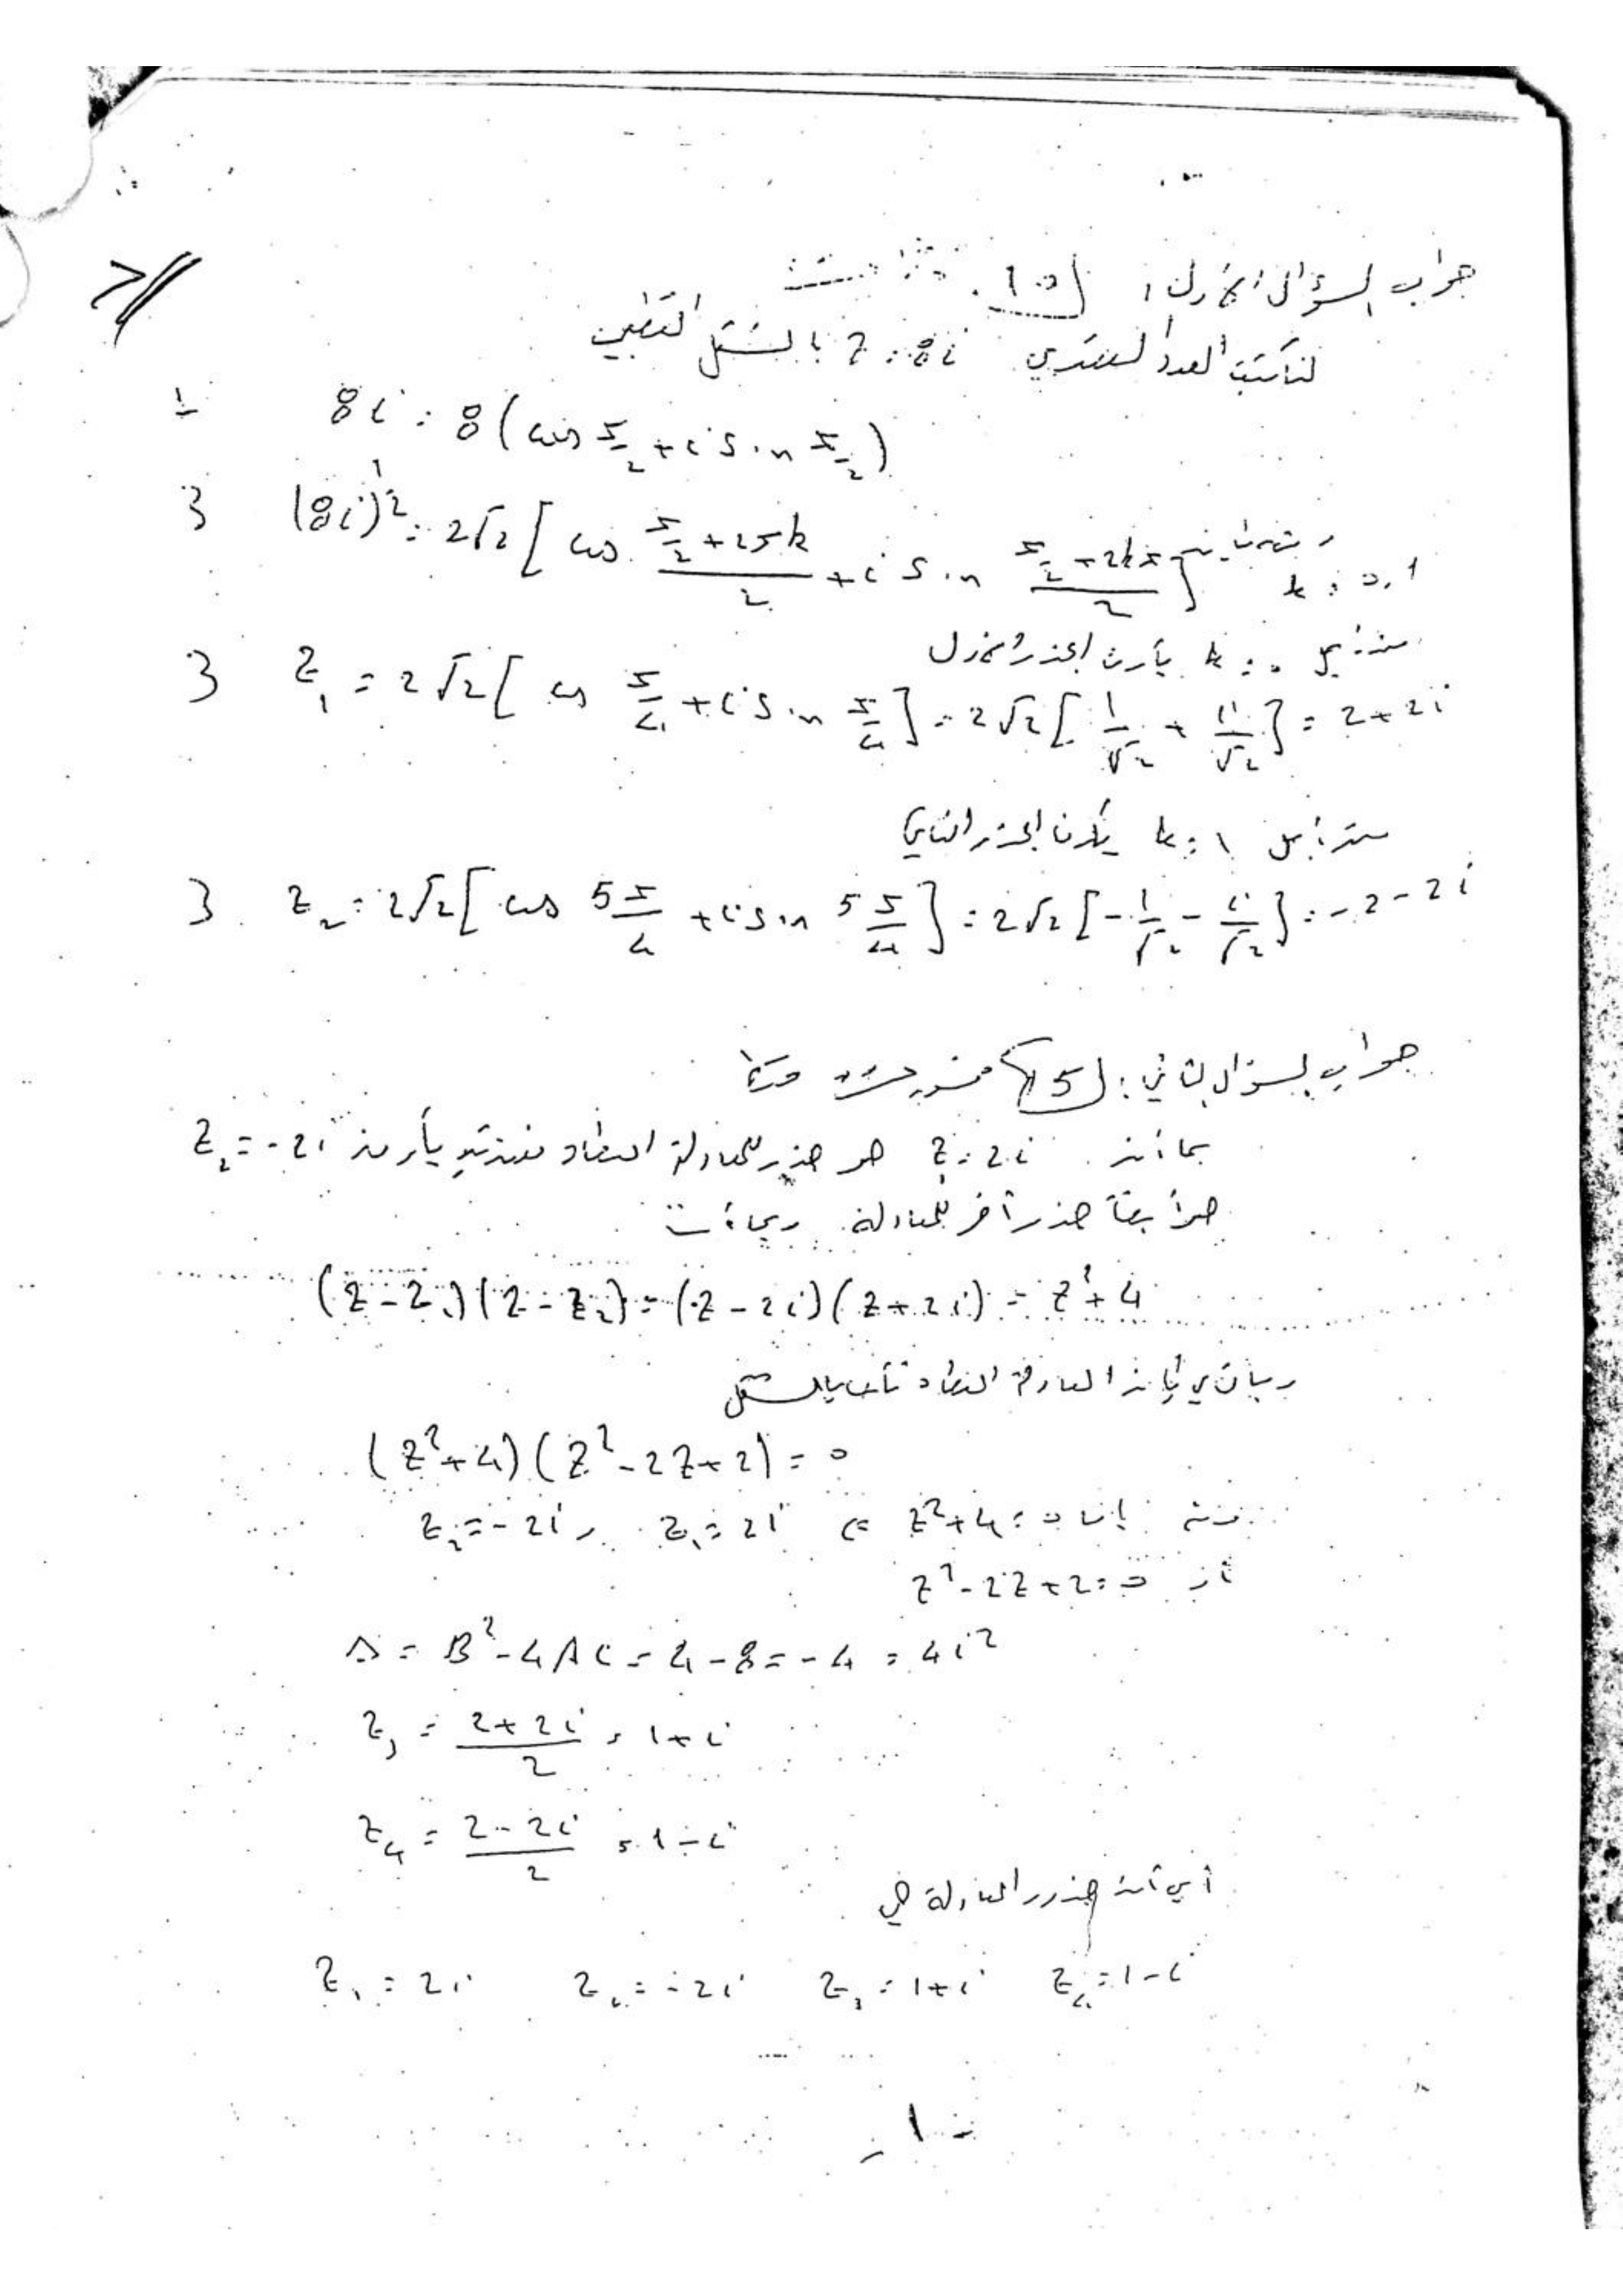 جواب السؤال الأول: (10)
لنكتب العدد العقدي Z = 8i بالشكل القطبي
1 8i = 8(cos π/2 + i sin π/2)
3 (8i)^1/2 = 2√2 [cos (π/2 + 2πk)/2 + i sin (π/2 + 2kπ)/2] k = 0, 1
من أجل k = 0 يكون الجذر الأول
3 Z₁ = 2√2 [cos π/4 + i sin π/4] = 2√2 [1/√2 + i/√2] = 2 + 2i
من أجل k = 1 يكون الجذر الثاني
3 Z₂ = 2√2 [cos 5π/4 + i sin 5π/4] = 2√2 [-1/√2 - i/√2] = -2 - 2i
جواب السؤال الثاني: (15) خمس عشرة درجة
بما أن Z = 2i هو جذر للمعادلة المعطاة فعندئذ يكون Z₂ = -2i
هو أيضاً جذر آخر للمعادلة. وبما أن
(Z - Z₁)(Z - Z₂) = (Z - 2i)(Z + 2i) = Z² + 4
وبالتالي فإن المعادلة المعطاة تكتب بالشكل
(Z² + 4)(Z² - 2Z + 2) = 0
إما Z² + 4 = 0 ⇒ Z₁ = 2i و Z₂ = -2i
أو Z² - 2Z + 2 = 0
Δ = B² - 4AC = 4 - 8 = -4 = 4i²
Z₃ = (2 + 2i)/2 = 1 + i
Z₄ = (2 - 2i)/2 = 1 - i
أي أن جذور المعادلة هي
Z₁ = 2i Z₂ = -2i Z₃ = 1 + i Z₄ = 1 - i
- 1 -